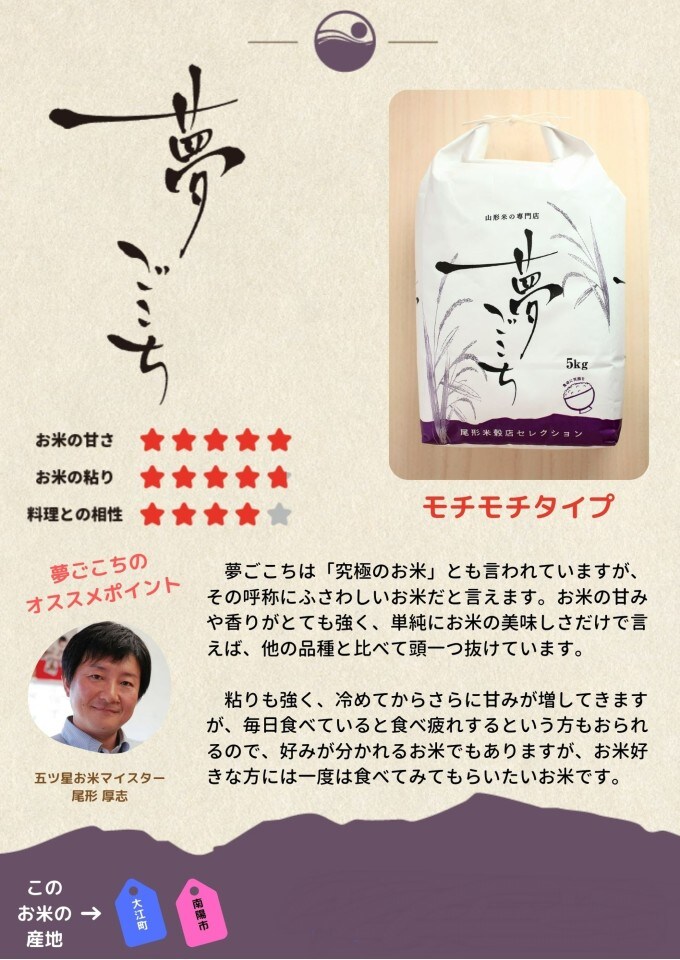 夢ごこち
山形米の専門店
夢ごこち
5kg
尾形米穀店セレクション
モチモチタイプ
お米の甘さ
お米の粘り
料理との相性
夢ごこちの
オススメポイント
夢ごこちは「究極のお米」とも言われていますが、
その呼称にふさわしいお米だと言えます。お米の甘み
や香りがとても強く、単純にお米の美味しさだけで言
えば、他の品種と比べて頭一つ抜けています。
粘りも強く、冷めてからさらに甘みが増してきます
が、毎日食べていると食べ疲れするという方もおられ
るので、好みが分かれるお米でもありますが、お米好
きな方には一度は食べてみてもらいたいお米です。
五ツ星お米マイスター
尾形 厚志
この
お米の
産地
→
大江町
南陽市